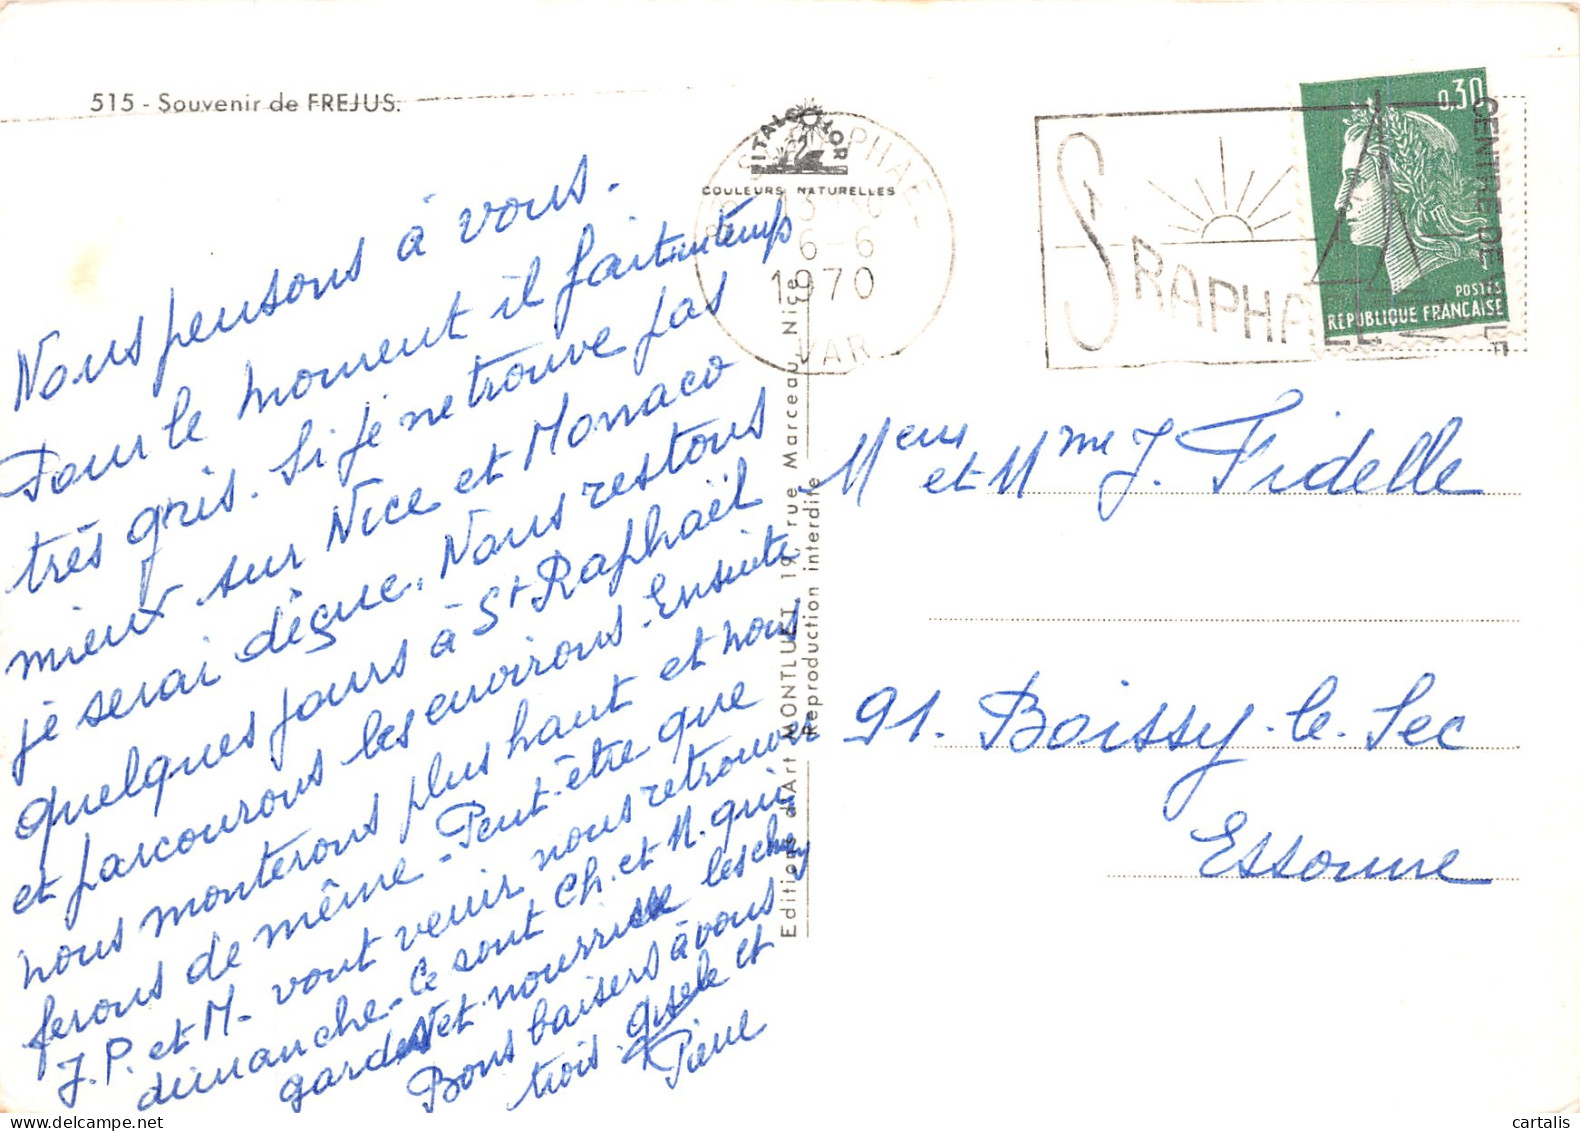 515 - Souvenir de FREJUS.
ITALCOLOR
COULEURS NATURELLES
ST RAPHAEL
13-30
6-6
1970
VAR
ST RAPHAEL
CENTRE DE VILLE
0,30
POSTES
REPUBLIQUE FRANCAISE
Nous pensons à vous.
Pour le moment il fait un temps
très gris. Si je ne trouve pas
mieux sur Nice et Monaco
je serai déçue. Nous restons
quelques jours à St Raphaël
et parcourons les environs. Ensuite
nous monterons plus haut et nous
ferons de même - Peut-être que
J.P. et M- vont venir nous retrouver
dimanche - Ce sont Ch. et M. qui
gardent et nourrissent les
Bons baisers à vous
trois. Gisèle et
Pierre
Editions d'Art MONTLUET 19, rue Marceau, Nice
Reproduction interdite
Meur et Mme J. Fidelle
91. Boissy-le-Sec
Essonne
cartalis